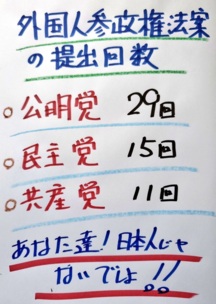 外国人参政権法案
の提出回数
○公明党 29回
○民主党 15回
○共産党 11回
あなた達!日本人じゃ
ないでしょ!!